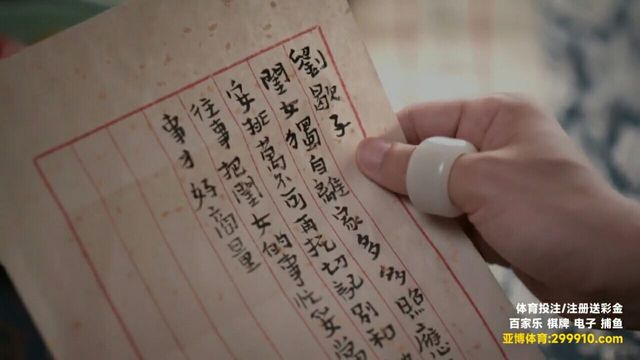 劉歇子
閨女獨自離家多多照應
安排萬不可再托切記別和
往事把閨女的事忙妥當
事才好商量
体育投注/注册送彩金
百家乐 棋牌 电子 捕鱼
亚博体育:299910.com